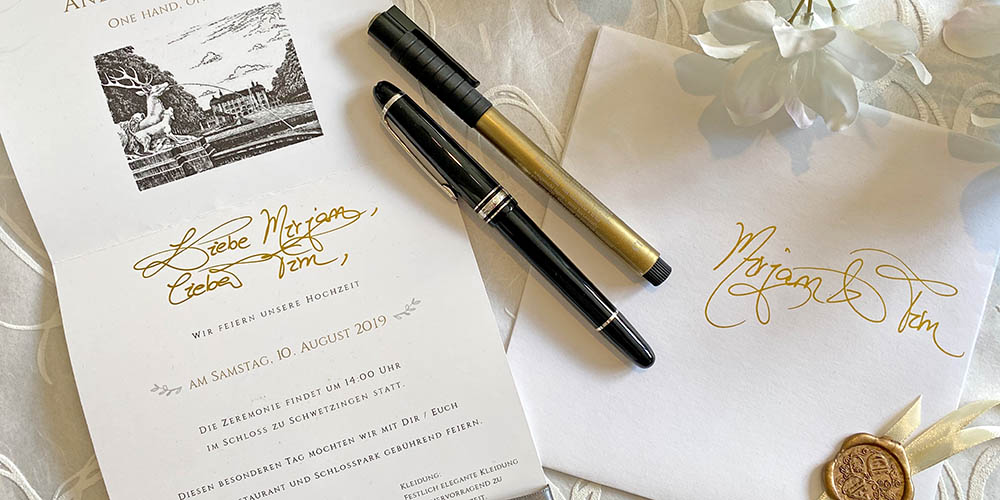 One Hand, On
Liebe Mirjam,
lieber Tim,
Wir feiern unsere Hochzeit
am Samstag, 10. August 2019
Die Zeremonie findet um 14.00 Uhr
im Schloss zu Schwetzingen statt.
Diesen besonderen Tag möchten wir mit Dir / Euch
staurant und Schlosspark gebührend feiern.
Kleidung:
Festlich elegante Kleidung
ervorragend zu
Mirjam & Tim